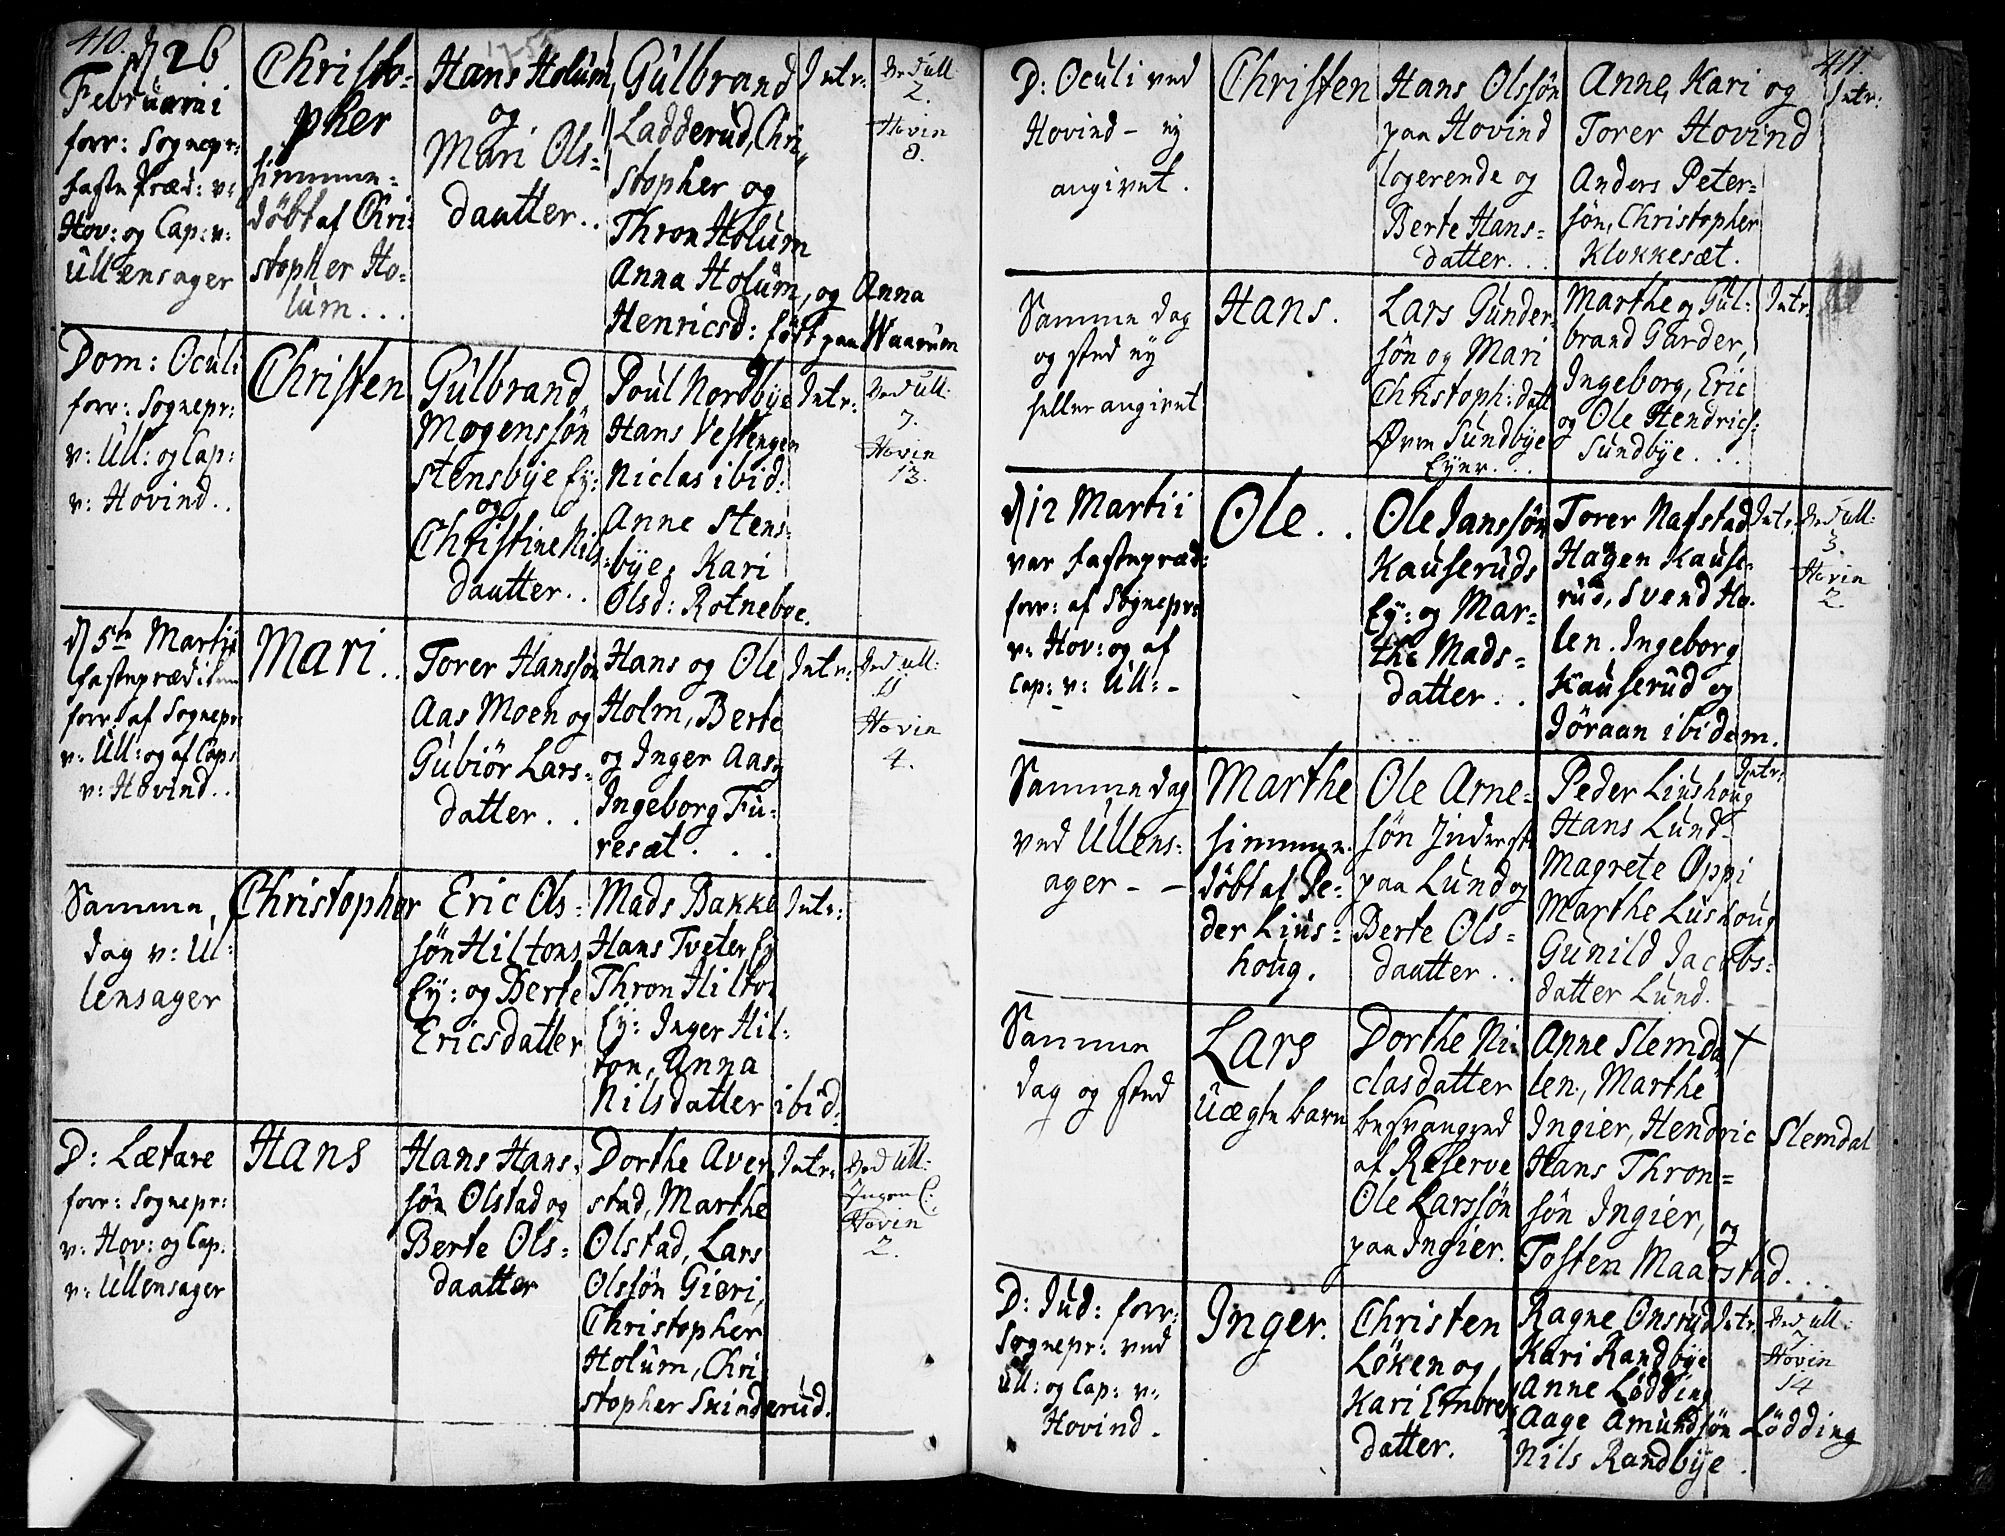 410.
d 26
Februarii
forr: Sognepr:
faste Præd: v:
Hov: og Cap: v:
Ullensager
Christo=
pher
himme=
döbt af Chri=
stopher Ho=
lum...
Hans Holum
og
Mari Ols=
daatter..
Gulbrand
Ladderud, Chri
stopher og
Thron Holum
Anna Holum, og Anna
Henricsd: föst paa Waarum
Intr:
Ved Ull:
2.
Hovin
8.
Dom: Oculi
forr: Sognepr:
v: Ull: og Cap:
v: Hovind..
Christen
Gulbrand
Mogenssön
Stensbye Ey:
og
Christine Nils
daatter..
Poul Nordbye
Hans Vestengen
Niclas ibid:
Anne Stens=
bye, Kari
Olsd: Rotneboe.
Intr:
Ved Ull:
7.
Hovin
13.
d 5te Martii
fasteprædiken
forr: af Sognepr:
v: Ull: og af Cap:
v: Hovind..
Mari..
Torer Hanssön
Aas Moen og
Gubiör Lars=
datter..
Hans og Ole
Holm, Berte
og Inger Aas,
Ingeborg Fu=
resæt...
Intr:
Ved Ull:
11
Hovin
4.
Samme
dag v: Ul=
lensager
Christopher
Eric Ols=
sön Hiltons
Ey: og Berte
Ericsdatter
Mads Bakke
Hans Tveter, Ey
Thron Hilton
Ey: Inger Hil=
ton, Anna
Nilsdatter ibid:
Intr:
D: Lætare
forr: Sognepr:
v: Hov: og Cap:
v: Ullensager
Hans
Hans Hans=
sön Olstad og
Berte Ols=
daatter
Dorthe Aver
stad, Marthe
Olstad, Lars
Olssön Gieri,
Christopher
Holum, Chri
stopher Skinderud.
Intr:
Ved Ull:
Ingen C:
Hovin
2.
411.
D: Oculi ved
Hovind - ny
angivet.
Christen
Hans Olssön
paa Hovind
logerende og
Berte Hans=
datter...
Anne, Kari og
Torer Hovind
Anders Peter=
sön, Christopher
Klokkesæt.
Intr:
Samme dag
og sted ny
heller angivet
Hans.
Lars Gunder=
sön og Mari
Christoph: datt
Övre Sundbye
Eyer...
Marthe og Gul=
brand Garder,
Ingeborg, Eric
og Ole Hendrics:
Sundbye...
Intr:
d 12 Martii
var fastepræd:
forr: af Sognepr:
v: Hov: og af
Cap: v: Ull: -
Ole..
Ole Janssön
Kauseruds
Ey: og Mar=
the Mads=
datter..
Torer Nafstad
Hagen Kause=
rud, Svend Ho=
len, Ingeborg
Kauserud og
Jöraan ibidem.
Intr:
Ved Ull:
3.
Hovin
2.
Samme dag
ved Ullens=
ager - -
Marthe
himme=
döbt af Pe=
der Lius=
houg.
Ole Arne=
sön Inderst
paa Lund og
Berte Ols=
daatter..
Peder Liushoug
Hans Lund
Magrete Oppi
Marthe Lushoug
Gunild Jacobs=
datter Lund.
Intr:
Samme
dag og sted
Lars
Uægte barn
Dorthe Ni=
clasdatter
besvangred
af Reserve
Ole Larssön
paa Ingier.
Anne Slemda
len, Marthe
Ingier, Hendric Slemdal
Hans Thron=
sön Ingier, og
Tosten Maarstad...
D: Jud: forr:
Sognepr: ved
Ull: og Cap: v:
Hovind.
Inger.
Christen
Löken og
Kari Embret
datter.
Ragne Onsrud
Kari Randbye
Anne Lödding
Aage Amundsön Lödding
Nils Randbye.
Intr.
Ved Ull:
7
Hovin
14